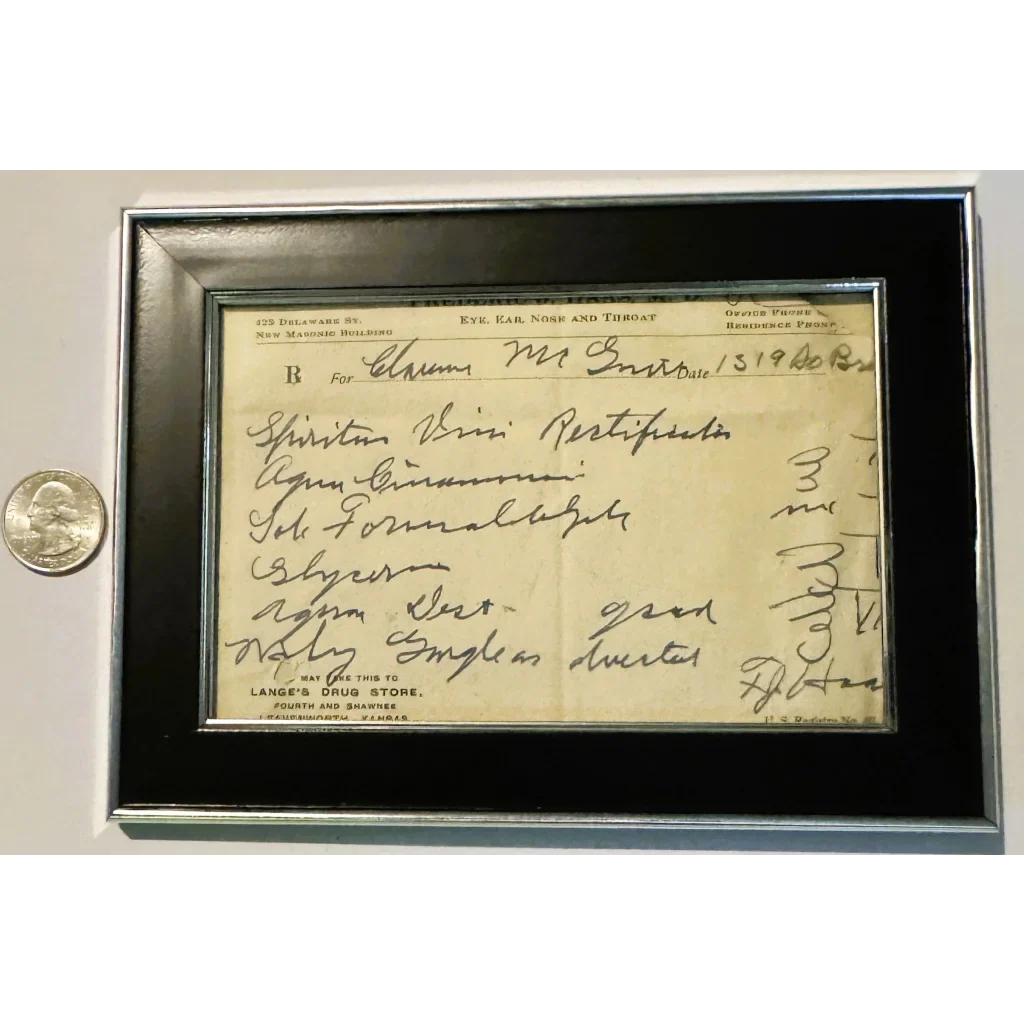 425 DELAWARE ST.
NEW MASONIC BUILDING
EYE, EAR, NOSE AND THROAT
OFFICE PHONE
RESIDENCE PHONE
℞ For Clarence Mc Date 1319 So
Spiritus Vini Rectificatis
Aqua Cinamomi
Sol Formaldehyde
Glycerin
Aqua Dest qsad
Gargle as directed
MAY TAKE THIS TO
LANGE'S DRUG STORE,
FOURTH AND SHAWNEE
LEAVENWORTH, KANSAS